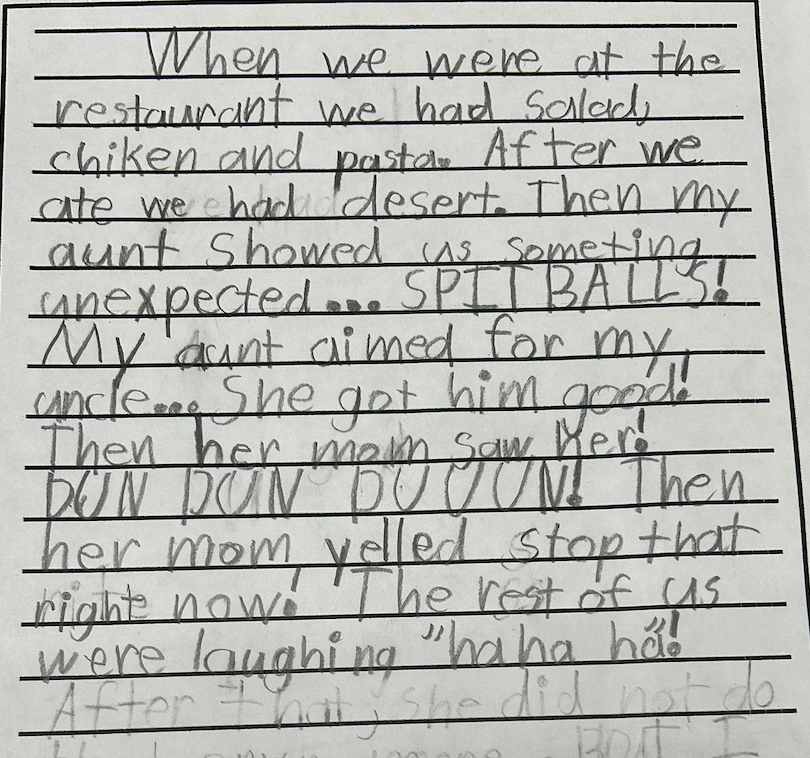 When we were at the
restaurant we had salad,
chiken and pasta. After we
ate we had desert. Then my
aunt showed us someting
unexpected... SPIT BALLS!
My aunt aimed for my
uncle... She got him good!
Then her mom saw her!
DUN DUN DUUUN! Then
her mom yelled stop that
right now! The rest of us
were laughing "haha ha"!
After that, she did not do
BUT I